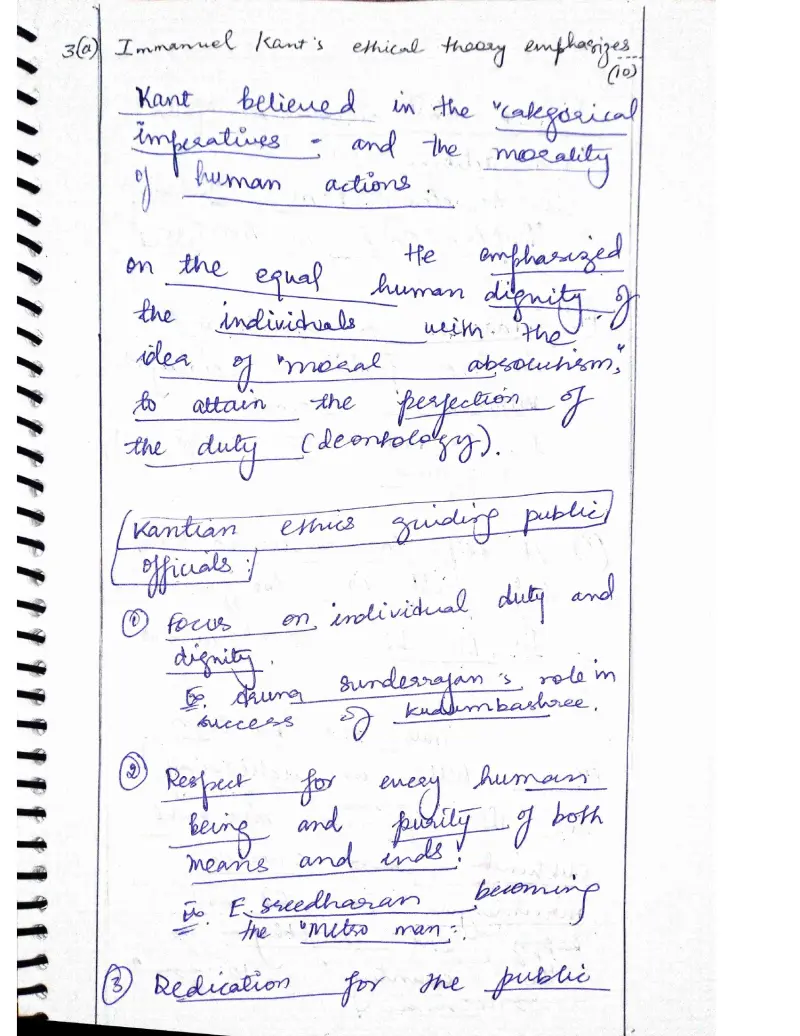 3(a) Immanuel Kant's ethical theory emphasizes
(10)
Kant believed in the "categorical
imperatives" and the morality
of human actions.
He emphasized
on the equal human dignity of
the individuals with the
idea of "moral absolutism,"
to attain the perfection of
the duty (deontology).
Kantian ethics guiding public
officials :
① Focus on individual duty and
dignity.
Ex. Aruna Sunderrajan's role in
success of Kudumbashree.
② Respect for every human
being and purity of both
means and ends.
Ex. E. Sreedharan becoming
the "Metro man".
③ Dedication for the public